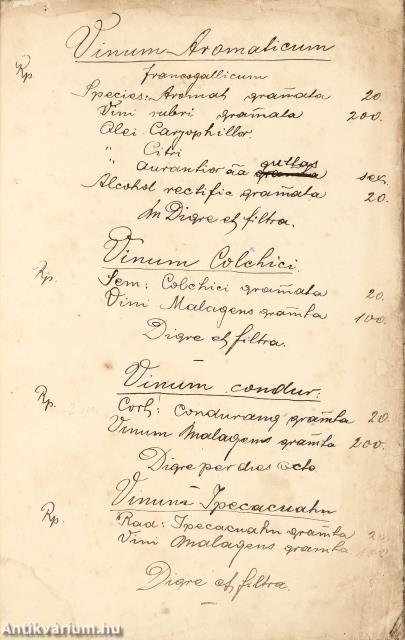 Vinum Aromaticum
Rp. francogallicum
Species: Aromat gram̄ata 20.
Vini rubri gram̄ata 200.
Olei Caryophillor.
" Citri guttas
" Aurantior āā gramata sex.
Alcohol rectific gram̄ata 20.
In Digre et filtra.
Vinum Colchici.
Rp. Sem: Colchici gram̄ata 20.
Vini Malagens gram̄ta 100.
Digre et filtra.
Vinum condur:
Rp. Cort: Condurang gram̄ta 20.
Vinum Malagens gram̄ta 200.
Digre per dies octo
Vinum Ipecacuahn
Rp. Rad: Ipecacuahn gram̄ta 20
Vini Malagens gram̄ta
Digre et filtra.
Antikvárium.hu